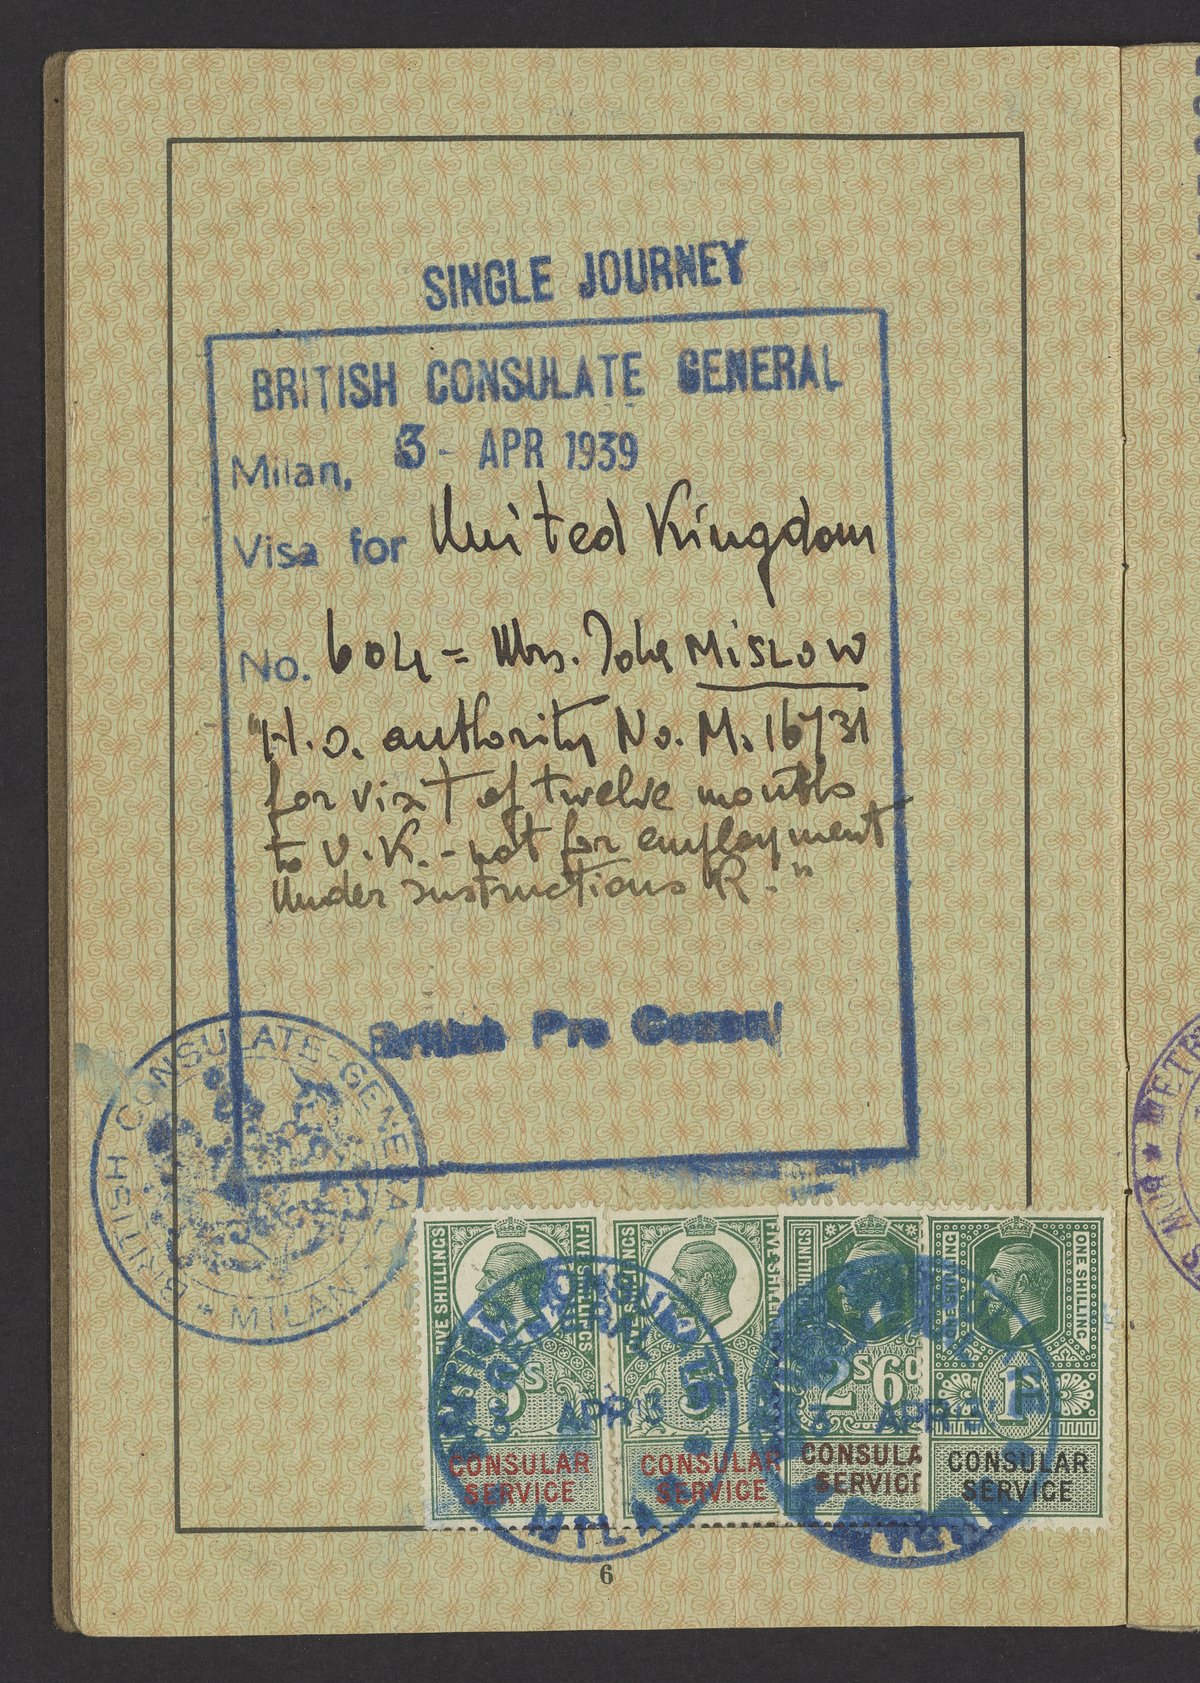 SINGLE JOURNEY
BRITISH CONSULATE GENERAL
Milan, 3 - APR 1939
Visa for United Kingdom
No. 604 = Mrs. MISLOW
"H.O. authority No. M. 16731
for visit of twelve months
to U.K. - not for employment
Under instructions R."
British Pro Consul
BRITISH CONSULATE-GENERAL
* MILAN *
FIVE SHILLINGS FIVE SHILLINGS
5s
CONSULAR
SERVICE
FIVE SHILLINGS FIVE SHILLINGS
5s
CONSULAR
SERVICE
SHILLINGS
2s6d
CONSULA
SERVICE
ONE SHILLING ONE SHILLING
1s
CONSULAR
SERVICE
3 APR
3 APR
6
METR